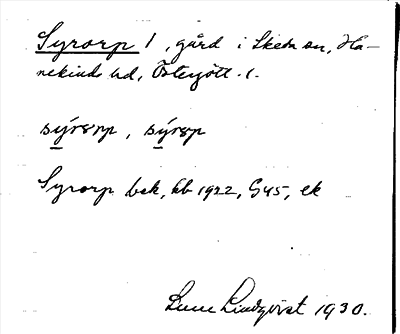 Syrorp 1, gård i Skeda sn, Ha-
nekinds hd, Östergötl. l.
sýrorp, sýrəp
Syrorp bek, kb 1922, G45, ek
Sune Lindqvist 1930.